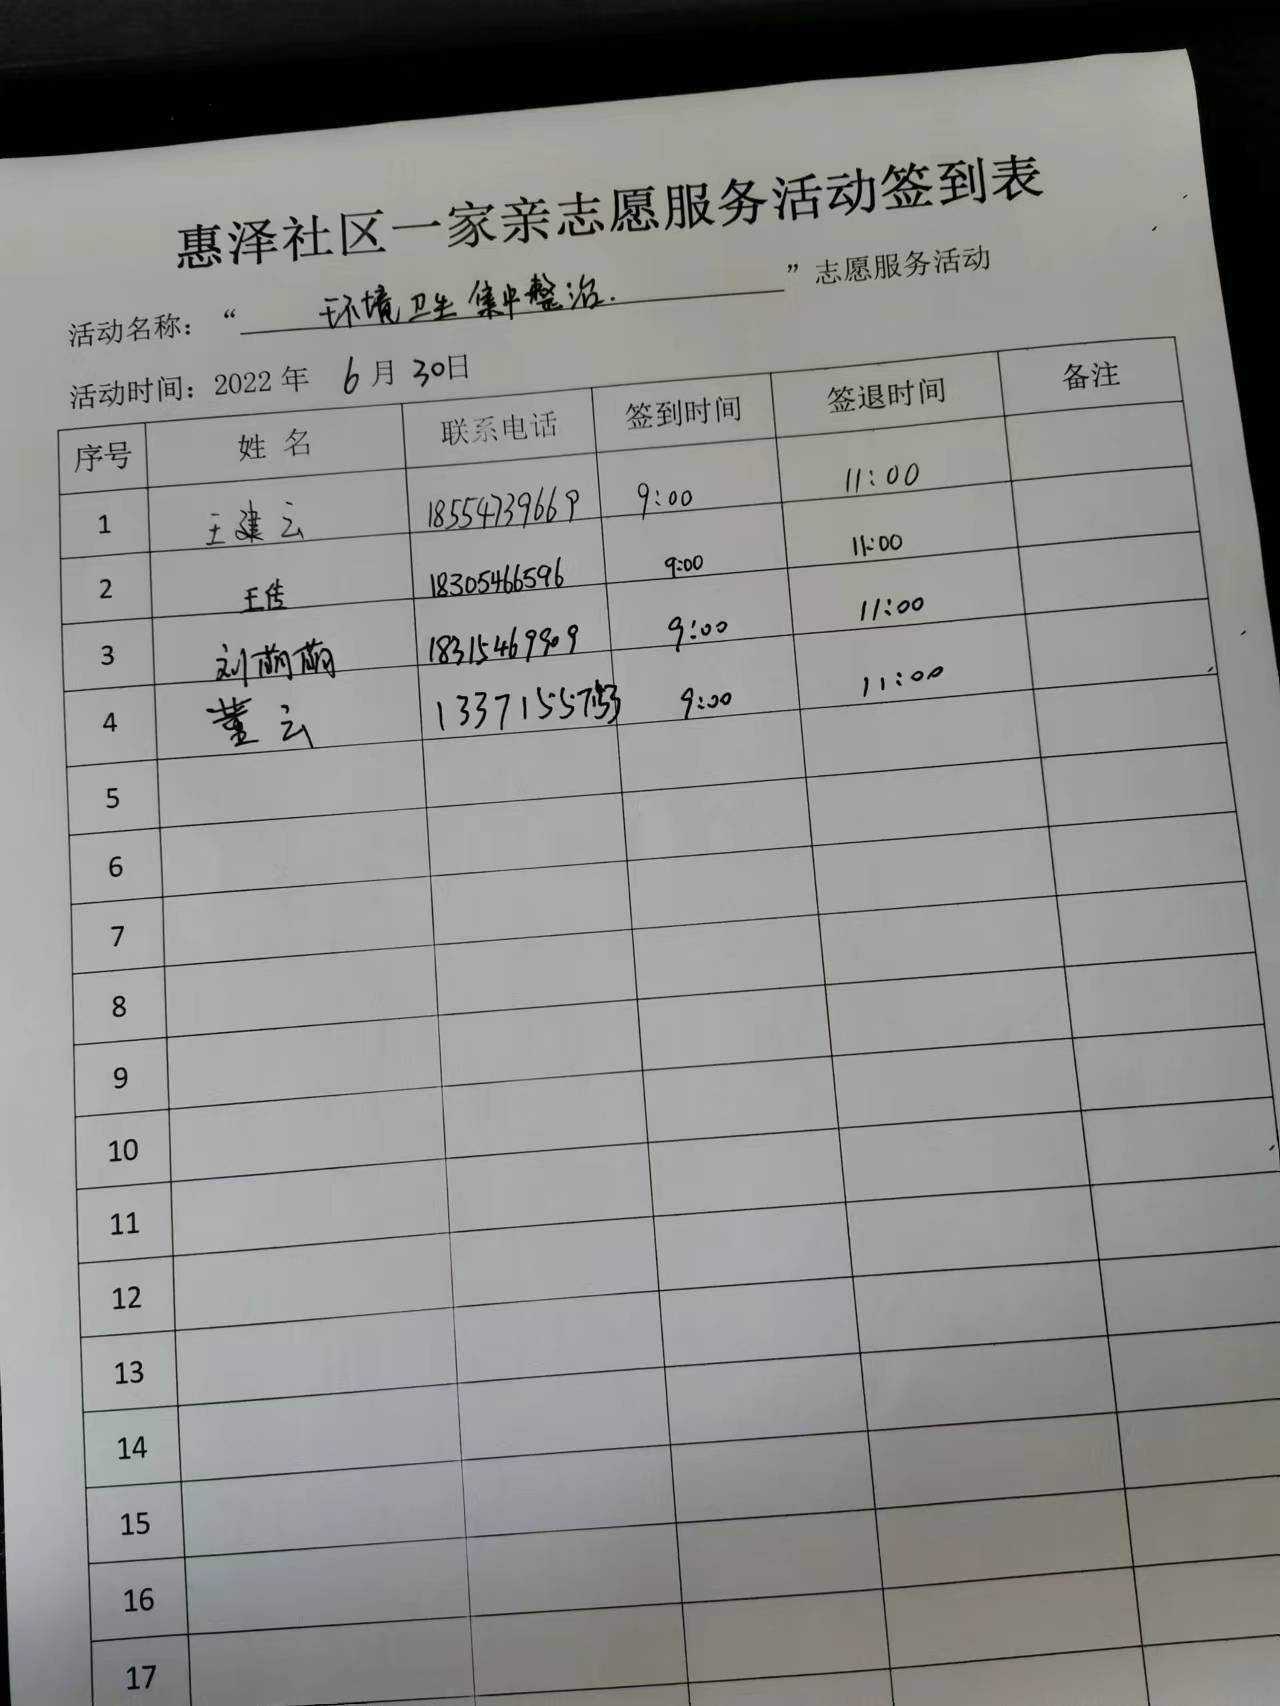 惠泽社区一家亲志愿服务活动签到表
活动名称：“环境卫生集中整治.”志愿服务活动
活动时间：2022年 6月30日
序号 姓名 联系电话 签到时间 签退时间 备注
1 王建云 18554739669 9:00 11:00
2 王传 18305466596 9:00 11:00
3 刘萌萌 9:00 11:00
4 董云 9:00 11:00
5
6
7
8
9
10
11
12
13
14
15
16
17